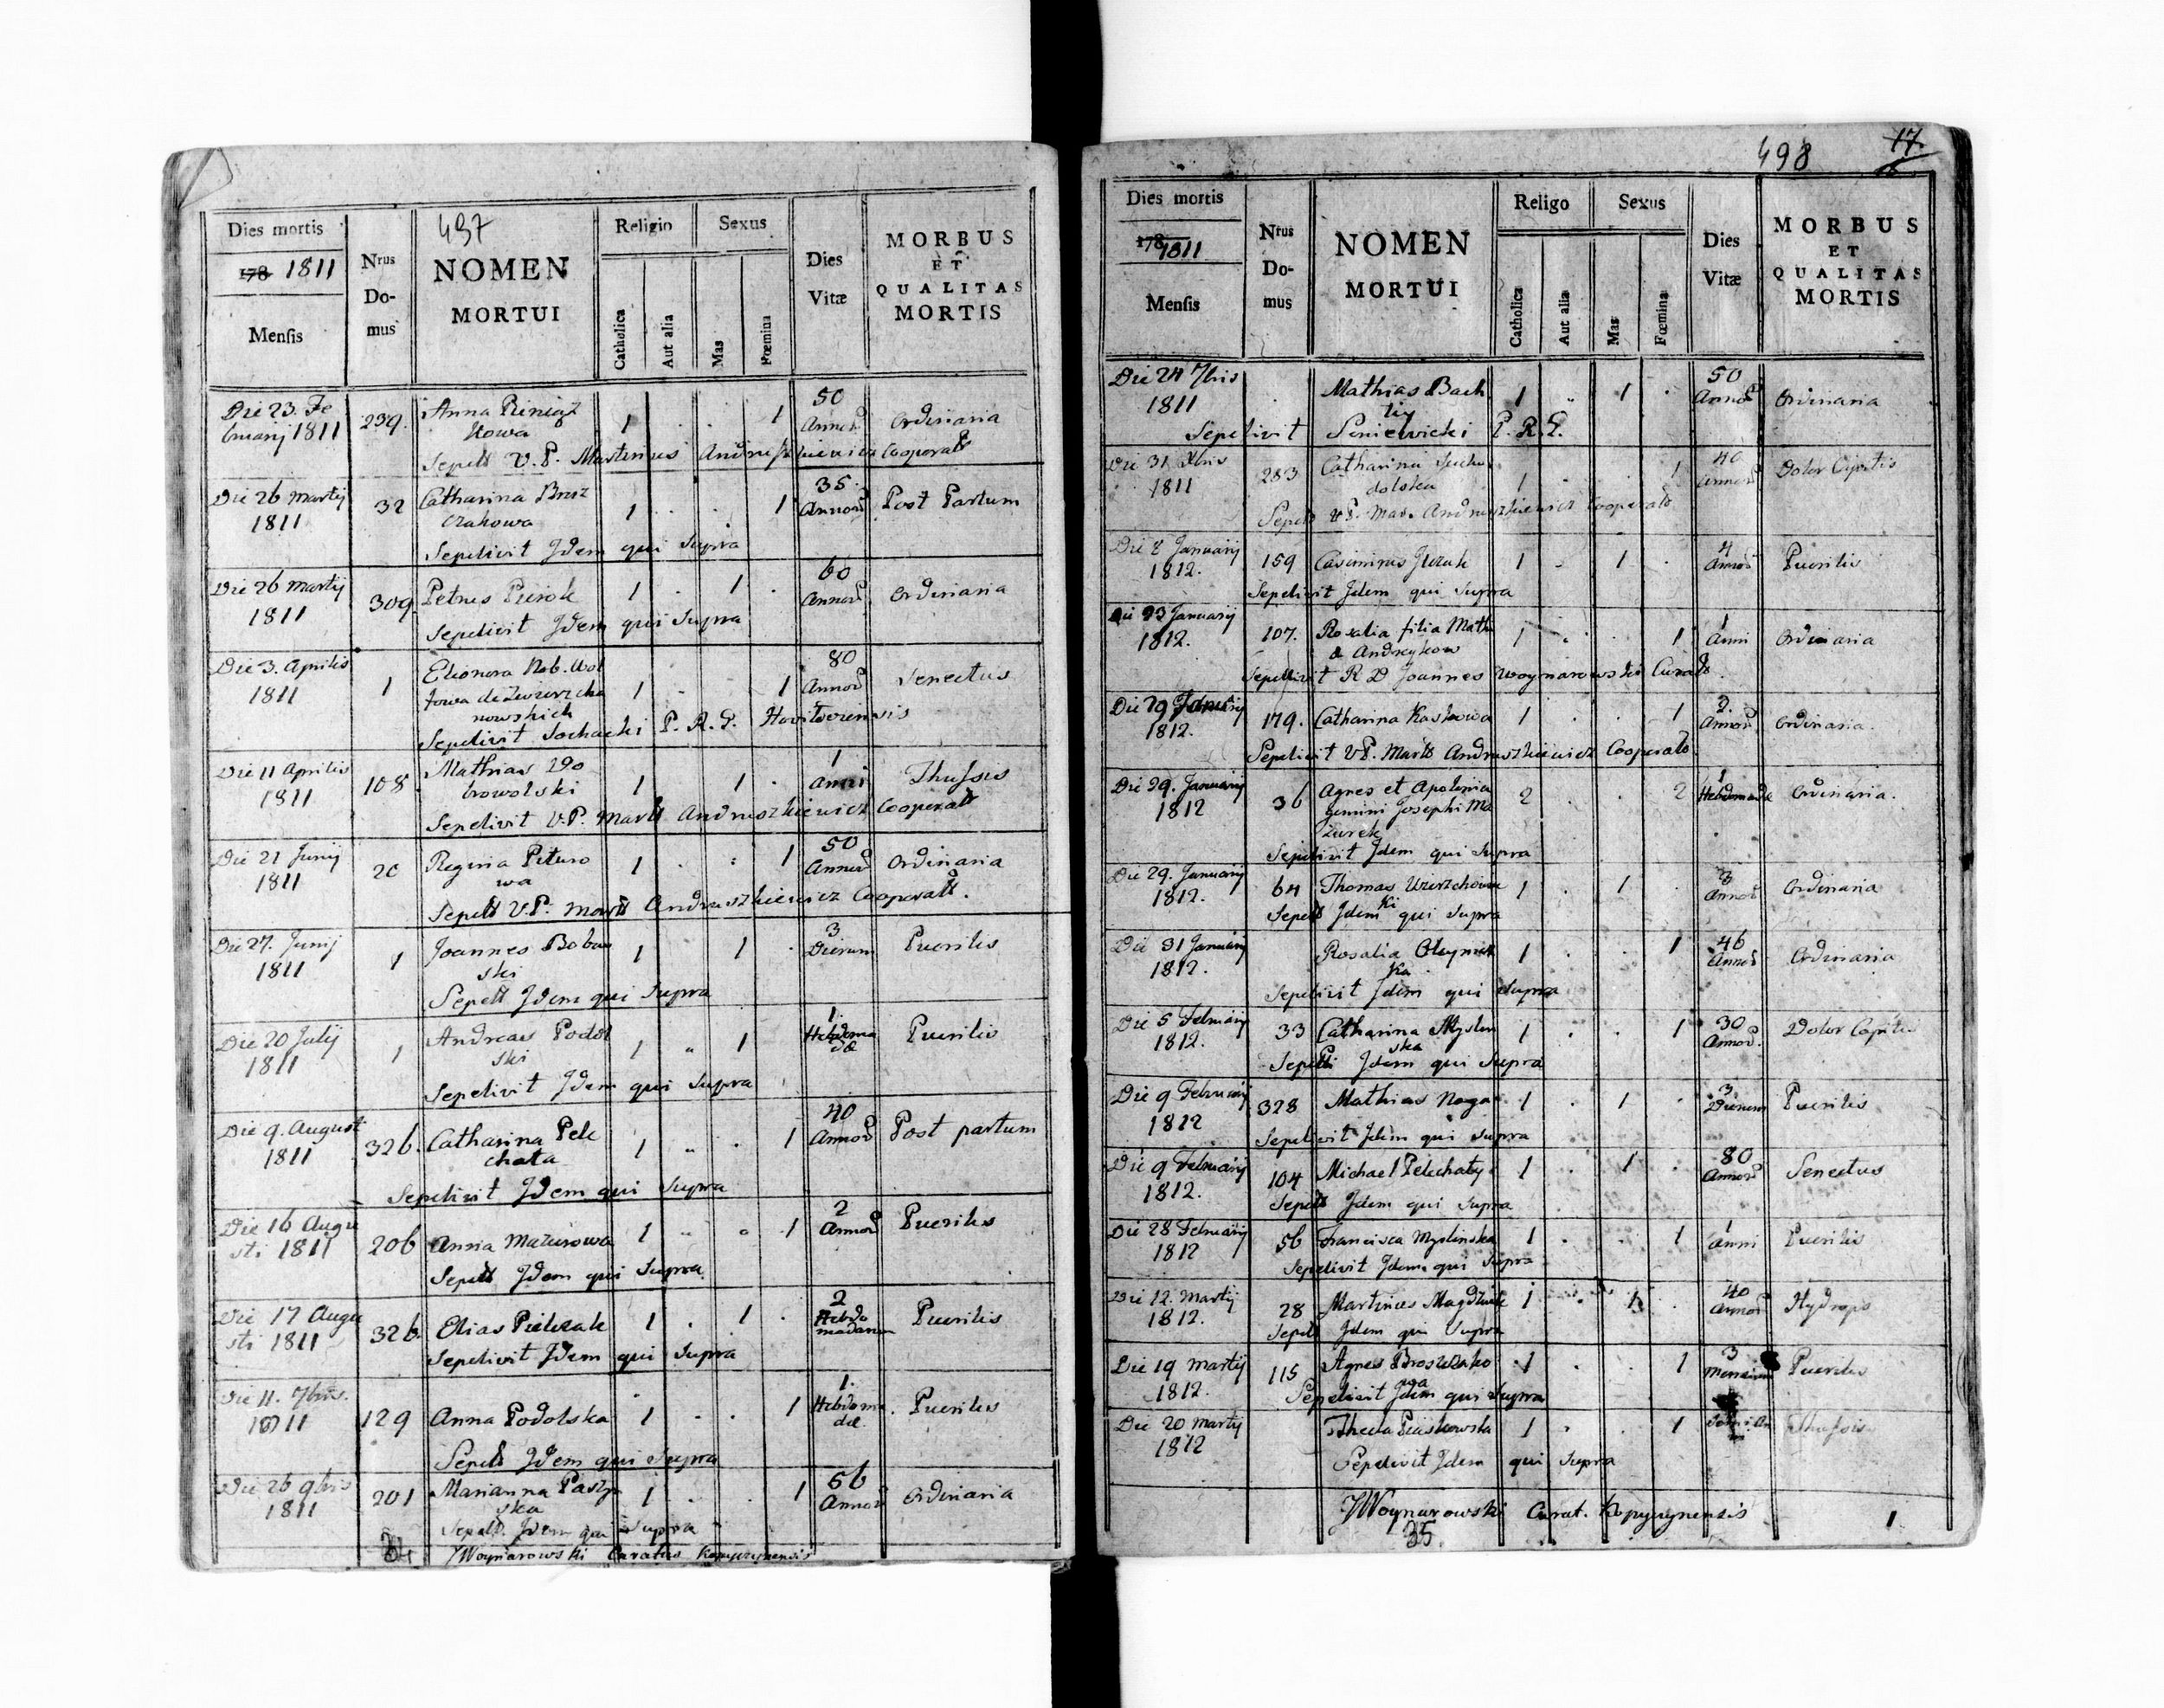 437
Dies mortis
178 1811
Mensis
Nrus
Do-
mus
NOMEN
MORTUI
Religio
Catholica
Aut alia
Sexus
Mas
Fœmina
Dies
Vitæ
MORBUS
ET
QUALITAS
MORTIS
Die 23. Fe 239. Anna Pieniąz 1 . . 1 50 Ordinaria
bruarij 1811 kowa Annor
Sepelt V. P. Martinus Andruszkiewicz Cooperat
Die 26 Martij 32 Catharina Brosz 1 . . 1 35. Post Partum
1811 czakowa Annor
Sepelivit Idem qui Supra
Die 26 Martij 309. Petrus Pierok 1 . 1 . 60 Ordinaria
1811 Annor
Sepelivit Idem qui Supra
Die 3. Aprilis 1 Elionora Nob. Wol 1 . 1 80 Senectus
1811 Annor
nowskich
Sepelivit Sochacki P. R. L.
Die 11 Aprilis 108 Mathias Do 1 1 . 1 Thussis
1811 browolski Anni
Sepelivit V. P. Mart Andruszkiewicz Cooperat
Die 21 Junij 20 Regina Pituro 1 . : 1 50 Ordinaria
1811 wa Annor
Sepelt V. P. Mart Andruszkiewicz Cooperat.
Die 27. Junij 1 Joannes Bobow 1 1 . 3 Puerilis
1811 ski Dierum
Sepelt Idem qui Supra
Die 20 Julij 1 Andreas Podol 1 „ 1 1. Puerilis
1811 ski Hebdoma
dæ
Sepelivit Idem qui Supra
Die 9. August 326. Catharina Pele 1 „ . 1 40 Post partum
1811 chata Annor
Sepelivit Idem qui Supra
Die 16 Augu 206 Anna Mazurowa 1 „ 1 2 Puerilis
sti 1811 Annor
Sepelt Idem qui Supra
Die 17 Augu 326. Elias Pielczak 1 . 1 . 2 Puerilis
sti 1811 Hebdo
madarum
Sepelivit Idem qui Supra
Die 11. 7bris. 129 Anna Podolska 1 . . 1 1. Puerilis
1811 Hebdoma
dæ
Sepelt Idem qui Supra
Die 26 9bris 201 Marianna Pasty 1 . . 1 56 Ordinaria
1811 ska Annor
Sepelt. Idem qui Supra
JWoynarowski Curatus Kopyczynensis
498
17.
Dies mortis
178 1811
Mensis
Nrus
Do-
mus
NOMEN
MORTUI
Religo
Catholica
Aut alia
Sexus
Mas
Fœmina
Dies
Vitæ
MORBUS
ET
QUALITAS
MORTIS
Die 24 7bris Mathias Bach 1 „ 1 . 50 Ordinaria
1811 Annor
Sepelivit Seniewicki P. R. L.
Die 31 Xbris 283 Catharina Sucho 1 . . 1 40 Dolor Capitis
1811 dolska Annor
Sepelt V. P. Mar. Andruszkiewicz Cooperat
Die 8 Januarij 159 Casimirus Jurak 1 . 1 . 4 Puerilis
1812. Annor
Sepelivit Idem qui Supra
Die 23 Januarij 107. Rosalia filia Math 1 . 1 1 Ordinaria
1812. Andreykow Anni
Sepelivit R D Joannes Woynarowski Curat.
Die 29 Januarij 179. Catharina Kaskowa 1 . . 1 2. Ordinaria.
1812. Annor
Sepelivit V. P. Mart Andruszkiewicz Cooperat.
Die 29. Januarij 36 Agnes et Apolonia 2 . . 2 1 Ordinaria.
1812 gemini Josephi Ma Hebdomadæ
zurek
Sepelivit Idem qui Supra
Die 29. Januarij 64 Thomas Wierzchow 1 . 1 . 3 Ordinaria
1812. ski Annor
Sepelt Idem qui Supra
Die 31 Januarij Rosalia Oleynic 1 . . 1 46 Ordinaria
1812. ka Annor
Sepelivit Idem qui Supra
Die 5 Februarij 33 Catharina Myslin 1 . . 1 30 Dolor Capitis
1812. ska Annor.
Sepelt Idem qui Supra
Die 9 Februarij 328 Mathias Noga 1 . 1 . 3 Puerilis
1812 Dierum
Sepelivit Idem qui Supra
Die 9 Februarij 104 Michael Pelechaty 1 . 1 . 80 Senectus
1812. Annor
Sepelt Idem qui Supra
Die 28 Februarij 56 Francisca Myslinska 1 . . 1 1 Puerilis
1812 Anni
Sepelivit Idem qui Supra
Die 12. Martij 28 Martinus Magdziak 1 . 1 . 40 Hydrops
1812. Annor
Sepelt Idem qui Supra
Die 19 Martij 115 Agnes Broszczako 1 . . 1 3 Puerilis
1812. wa Mensium
Sepelivit Idem qui Supra
Die 20 Martij Thecla Piaskowska 1 . . 1 Thussis
1812
Sepelivit Idem qui Supra
JWoynarowski Curat. Kopyczynensis
35
1